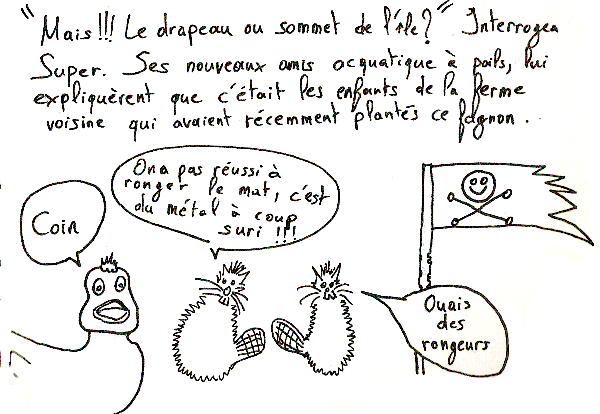 "Mais !!! Le drapeau au sommet de l'île ?" Interrogea
Super. Ses nouveaux amis acquatique à poils, lui
expliquèrent que c'était les enfants de la ferme
voisine qui avaient récemment plantés ce fagnon.
Coin
On a pas réussi à
ronger le mat, c'est
du métal à coup
suri !!!
Ouais
des
rongeurs